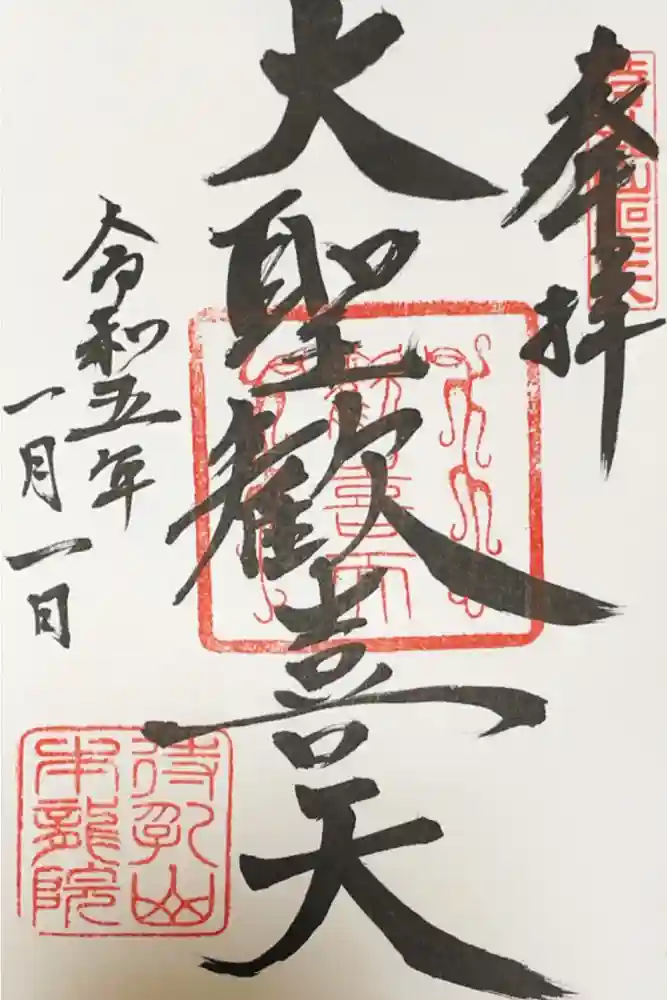 奉拝
大聖歓喜天
令和五年
一月一日
歓喜天
待乳山
本龍院